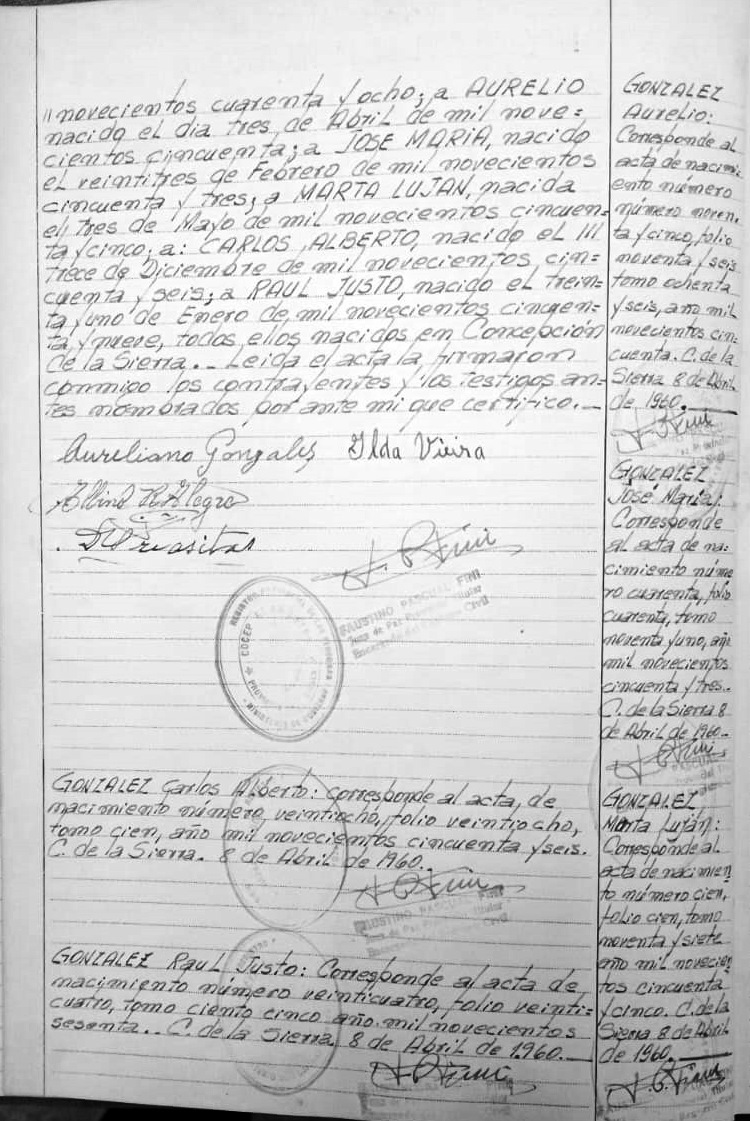 " novecientos cuarenta y ocho; a AURELIO
nacido el dia tres de Abril de mil nove=
cientos cincuenta; a JOSE MARIA, nacido
el veintitres de Febrero de mil novecientos
cincuenta y tres; a MARTA LUJAN, nacida
el tres de Mayo de mil novecientos cincuen=
ta y cinco; a: CARLOS ALBERTO, nacido el III
trece de Diciembre de mil novecientos cin=
cuenta y seis; a RAUL JUSTO, nacido el trein=
ta y uno de Enero de mil novecientos cincuen=
ta y nueve, todos ellos nacidos en Concepción
de la Sierra._ Leida el acta la firmaron
conmigo los contrayentes y los testigos an=
tes nombrados por ante mi que certifico._
Aureliano Gonzales Ilda Vieira
Albino R Alegre
FAUSTINO PASCUAL FINI
Juez de Paz Titular
Encargado del Registro Civil
GONZALEZ Carlos Alberto: corresponde al acta de
nacimiento número veintiocho, folio veintiocho,
tomo cien, año mil novecientos cincuenta y seis.
C. de la Sierra. 8 de Abril de 1960.
FAUSTINO PASCUAL FINI
GONZALEZ Raul Justo: Corresponde al acta de
nacimiento número veinticuatro, folio veinti=
cuatro, tomo ciento cinco año mil novecientos
sesenta.. C. de la Sierra 8 de Abril de 1960._
GONZALEZ
Aurelio:
Corresponde al
acta de nacimi=
ento número
número noven=
ta y cinco, folio
noventa y seis
tomo ochenta
y seis, año mil
novecientos cin=
cuenta. C. de la
Sierra 8 de Abril
de 1960._
GONZALEZ
José Maria;
Corresponde
al acta de na=
cimiento núme
ro cuarenta, folio
cuarenta, tomo
noventa y uno, año
mil novecientos
cincuenta y tres._
C. de la Sierra 8
de Abril de 1960._
GONZALEZ
Marta Luján:
Corresponde al
acta de nacimien
to número cien,
folio cien, tomo
noventa y siete
año mil novecien
tos cincuenta
y cinco. C. de la
Sierra 8 de Abril
de 1960._